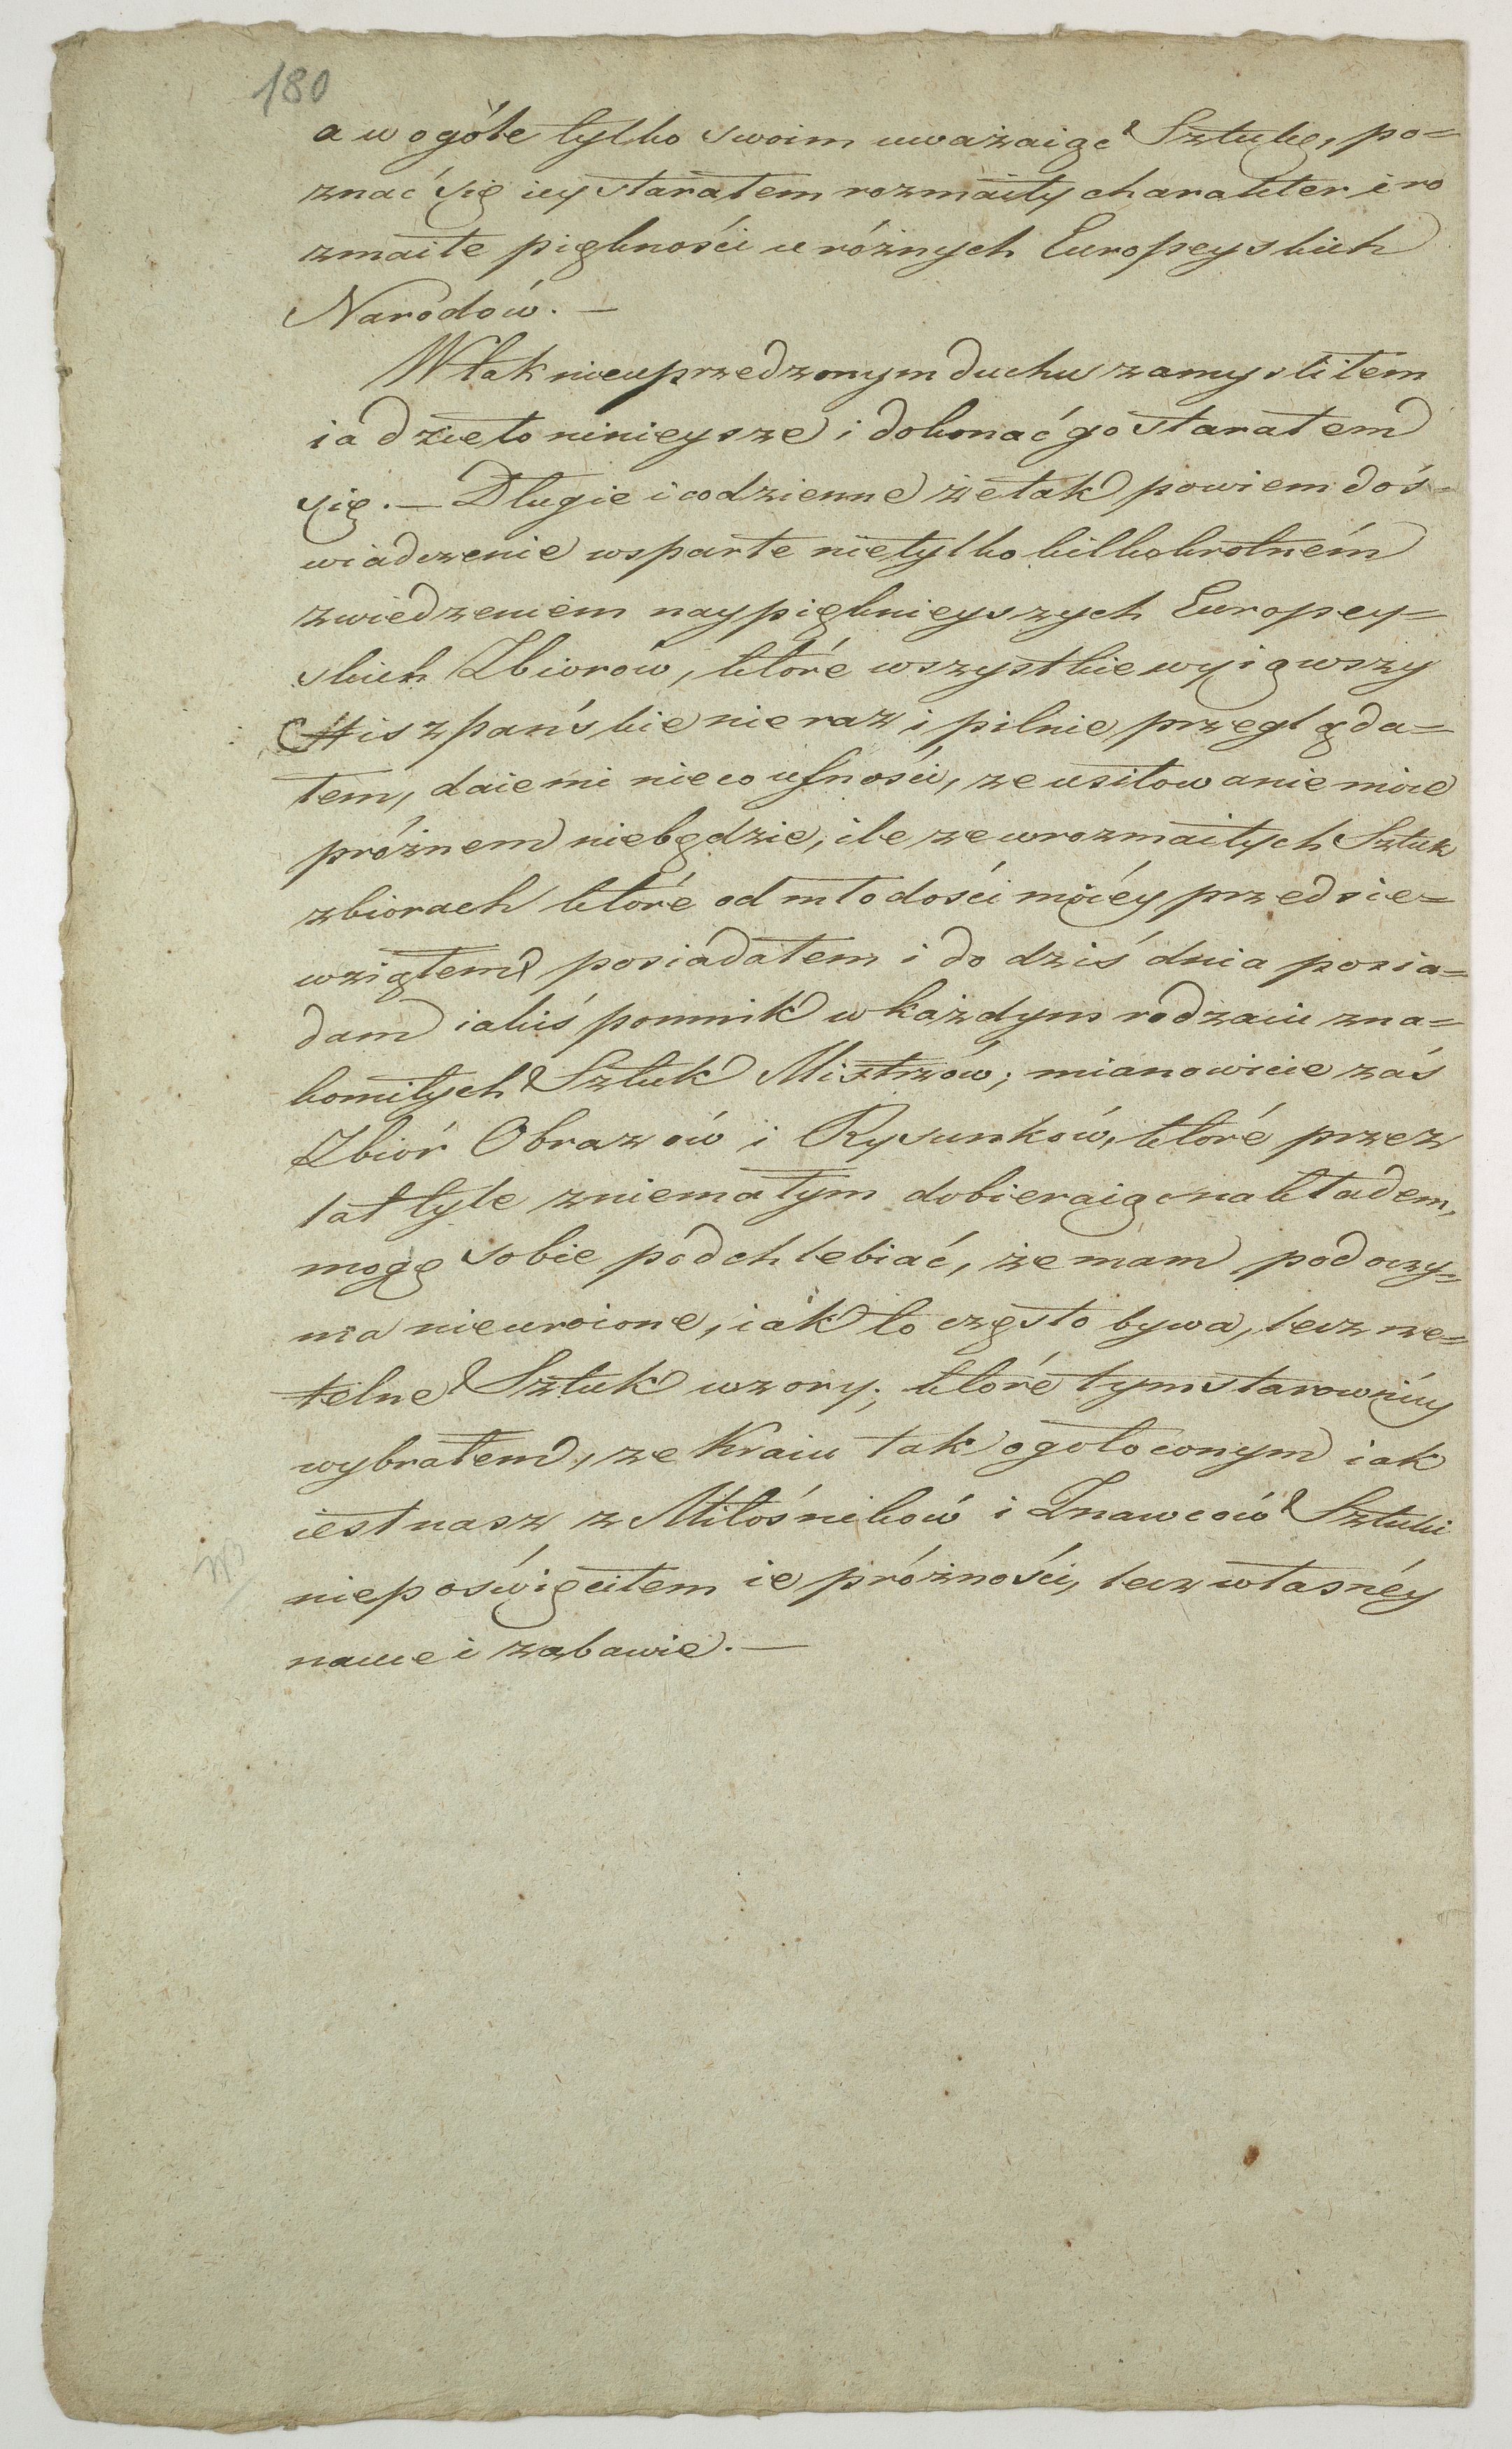 180
a w ogóle tylko swoim uważaiąc Sztukę, po=
znać się iey starałem rozmaity charakter i ro
zmaite piękności u różnych Europeyskich
Narodów. —
W tak nieuprzedzonym duchu zamyśliłem
ia dzieło ninieysze i dokonać go starałem
się. — Długie i codzienne że tak powiem doś-
wiadczenie wsparte nietylko kilkokrotném
zwiedzeniem naypięknieyszych Europey=
skich Zbiorów, które wszystkie wyiąwszy
Hiszpańskie nieraz i pilnie przegląda=
łem, daie mi nieco ufności, ze usiłowanie moie
próżnem niebędzie, ile ze w rozmaitych Sztuk
zbiorach które od młodości moiéy przedsie=
wziąłem posiadałem i do dziś dnia posia=
dam iakiś pomnik w każdym rodzaiu zna=
komitych Sztuk Mistrzów; mianowicie zaś
Zbiór Obrazów i Rysunków, które przez
lat tyle z niemałym dobieraiąc nakładem,
mogę sobie podchlebiać, że mam pod oczy=
ma nieuroione, iak to często bywa, lecz rze=
telne Sztuk wzory; które tym starowniéy
wybrałem, ze Kraiu tak ogołoconym iak
iest nasz z Miłośników i Znawców Sztuki
niepoświęciłem ie próżności, lecz własnéy
nauce i zabawie. —